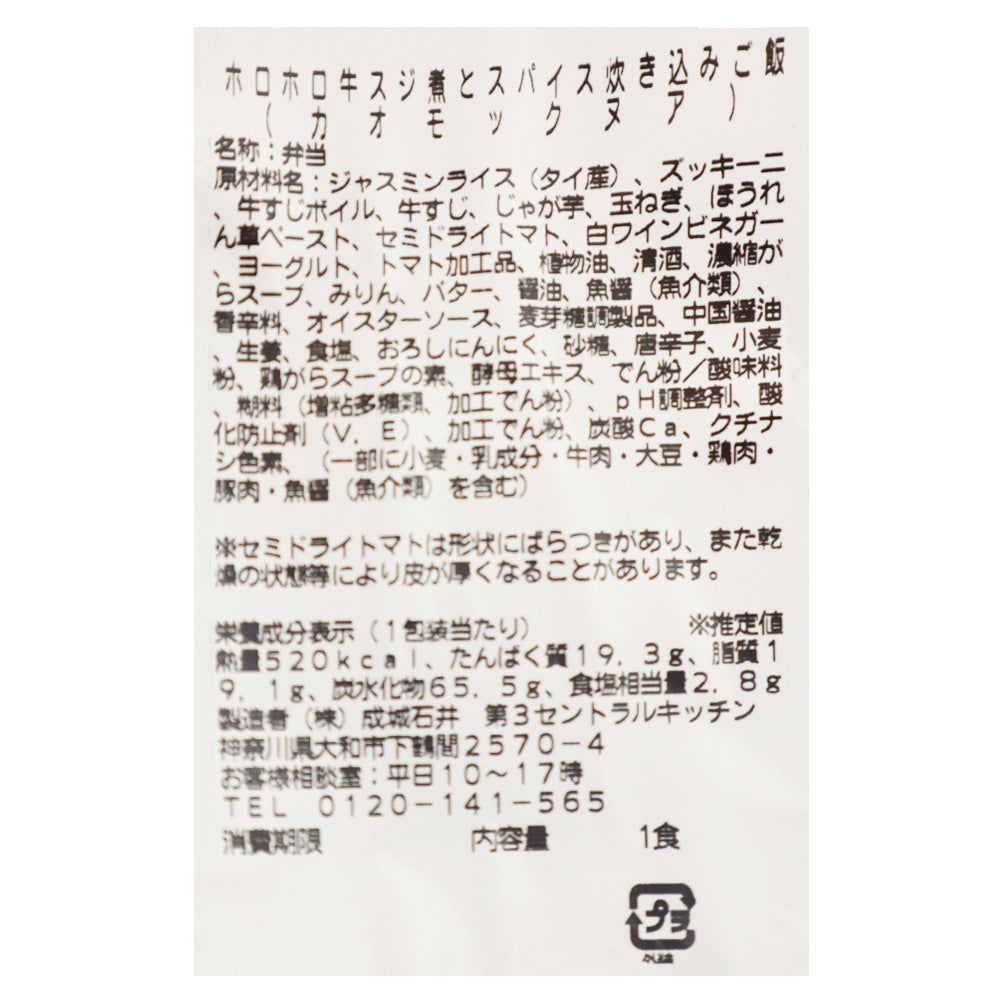 ホロホロ牛スジ煮とスパイス炊き込みご飯
（カオモックヌア）
名称：弁当
原材料名：ジャスミンライス（タイ産）、ズッキーニ
、牛すじボイル、牛すじ、じゃが芋、玉ねぎ、ほうれ
ん草ペースト、セミドライトマト、白ワインビネガー
、ヨーグルト、トマト加工品、植物油、清酒、濃縮が
らスープ、みりん、バター、醤油、魚醤（魚介類）、
香辛料、オイスターソース、麦芽糖調製品、中国醤油
、生姜、食塩、おろしにんにく、砂糖、唐辛子、小麦
粉、鶏がらスープの素、酵母エキス、でん粉／酸味料
、糊料（増粘多糖類、加工でん粉）、ｐＨ調整剤、酸
化防止剤（Ｖ．Ｅ）、加工でん粉、炭酸Ｃａ、クチナ
シ色素、（一部に小麦・乳成分・牛肉・大豆・鶏肉・
豚肉・魚醤（魚介類）を含む）
※セミドライトマトは形状にばらつきがあり、また乾
燥の状態等により皮が厚くなることがあります。
栄養成分表示（１包装当たり） ※推定値
熱量５２０ｋｃａｌ、たんぱく質１９．３ｇ、脂質１
９．１ｇ、炭水化物６５．５ｇ、食塩相当量２．８ｇ
製造者（株）成城石井　第３セントラルキッチン
神奈川県大和市下鶴間２５７０－４
お客様相談室：平日１０～１７時
ＴＥＬ　０１２０－１４１－５６５
消費期限 内容量 1食
プラ